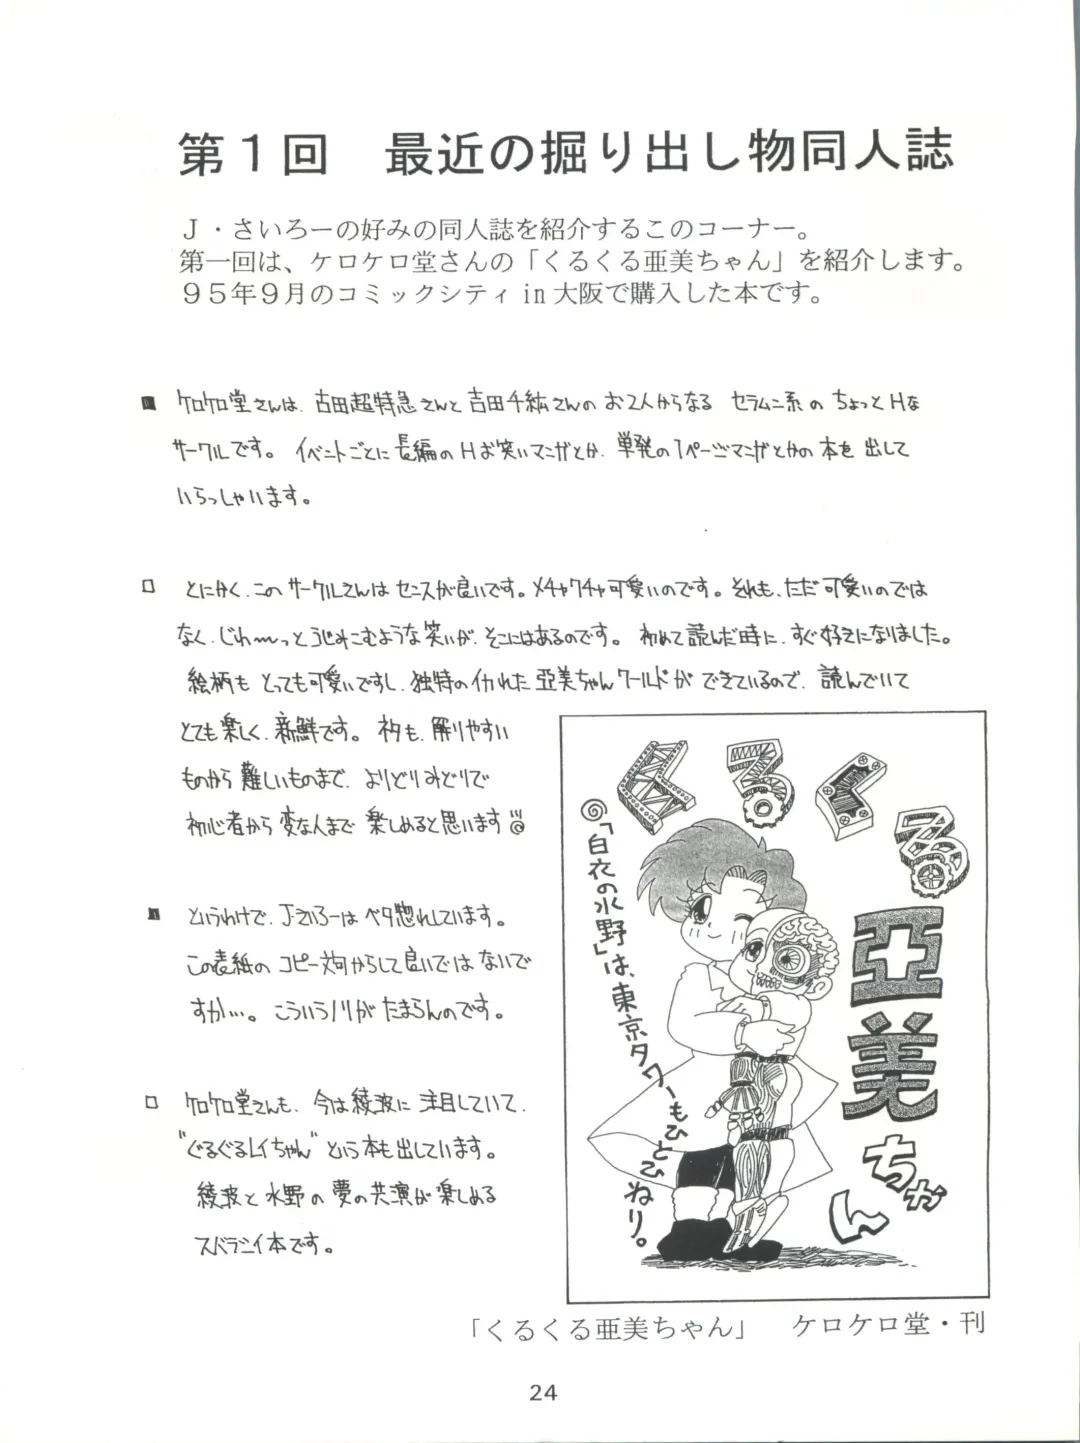 第1回　最近の掘り出し物同人誌
J・さいろーの好みの同人誌を紹介するこのコーナー。
第一回は、ケロケロ堂さんの「くるくる亜美ちゃん」を紹介します。
95年9月のコミックシティin大阪で購入した本です。
■ ケロケロ堂さんは、古田超特急さんと吉田千紘さんのお2人からなる セラムン系のちょっとHな
サークルです。 イベントごとに長編のHお笑いマンガとか、単発の1ページマンガとかの本を出して
いらっしゃいます。
□ とにかく、このサークルさんはセンスが良いです。メチャクチャ可愛いのです。それも、ただ可愛いのでは
なく、じわ〜〜っとうじみこむような笑いが、そこにはあるのです。 初めて読んだ時に、すぐ好きになりました。
絵柄も とっても可愛いですし、独特のイカれた亜美ちゃんワールドができているので、読んでいて
とても楽しく、新鮮です。 ネタも、解りやすい
ものから難しいものまで、よりどりみどりで
初心者から変な人まで楽しめると思います
■ というわけで、Jさいろーはベタ惚れしています。
この表紙のコピー文句からして良いではないで
すか…。 こういうノリがたまらんのです。
□ ケロケロ堂さんも、今は綾波に注目していて、
"ぐるぐるレイちゃん"という本も出しています。
綾波と水野の夢の共演が楽しめる
スバラシイ本です。
くるくる
亜美ちゃん
「白衣の水野」は、東京タワーもひとひねり。
「くるくる亜美ちゃん」　ケロケロ堂・刊
24